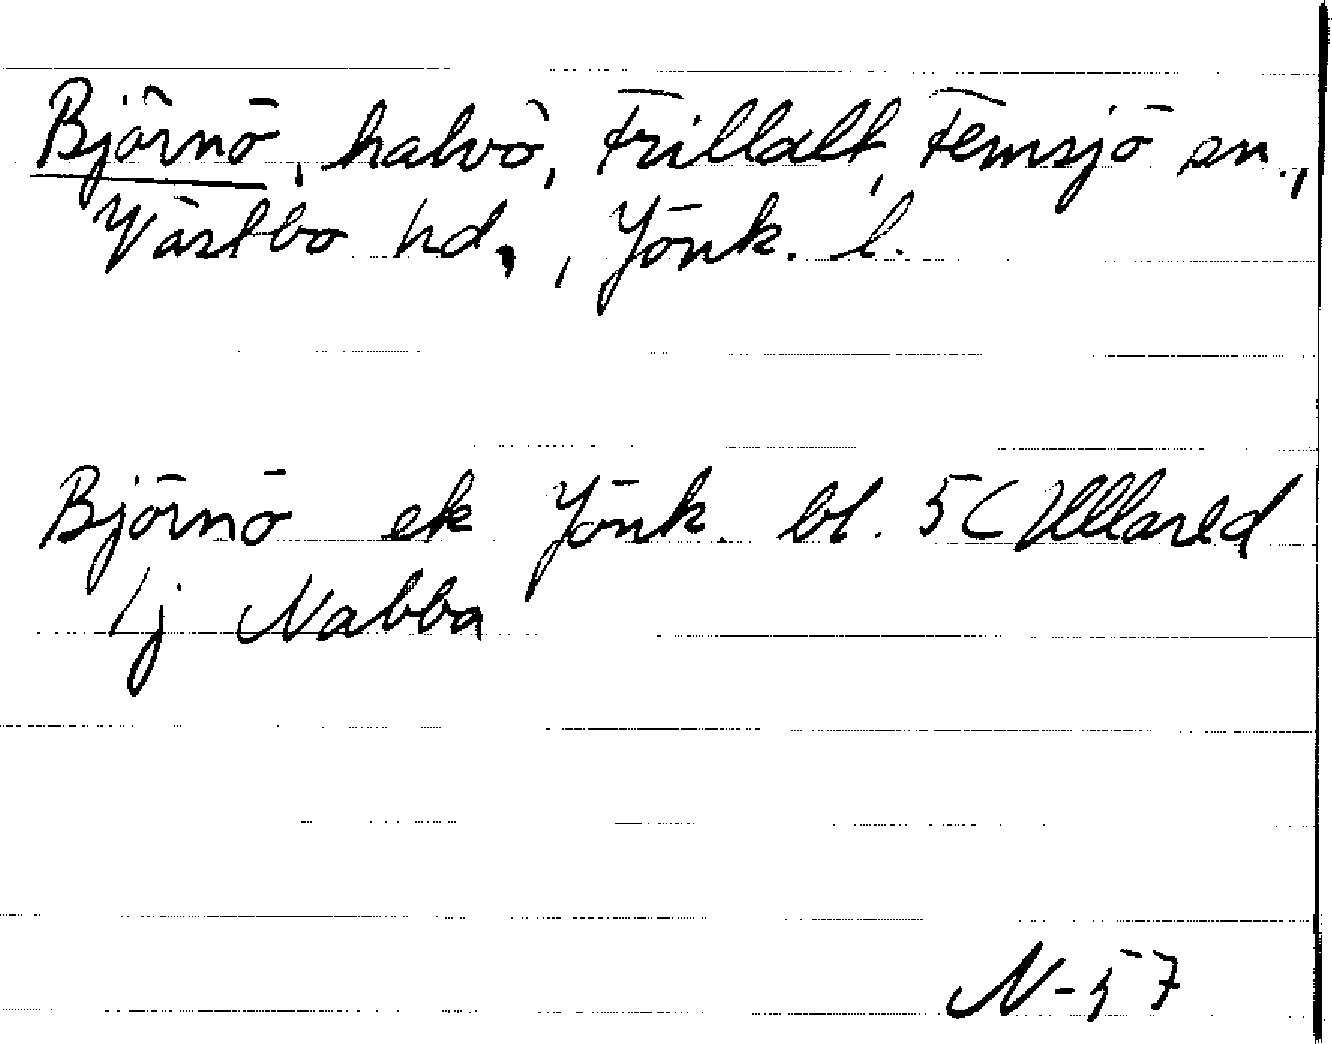 Björnö, halvö, Trillalt, Femsjö sn.,
Västbo hd., Jönk. l.
Björnö ek Jönk. bl. 5C Ullared
/j Nabba
N-57